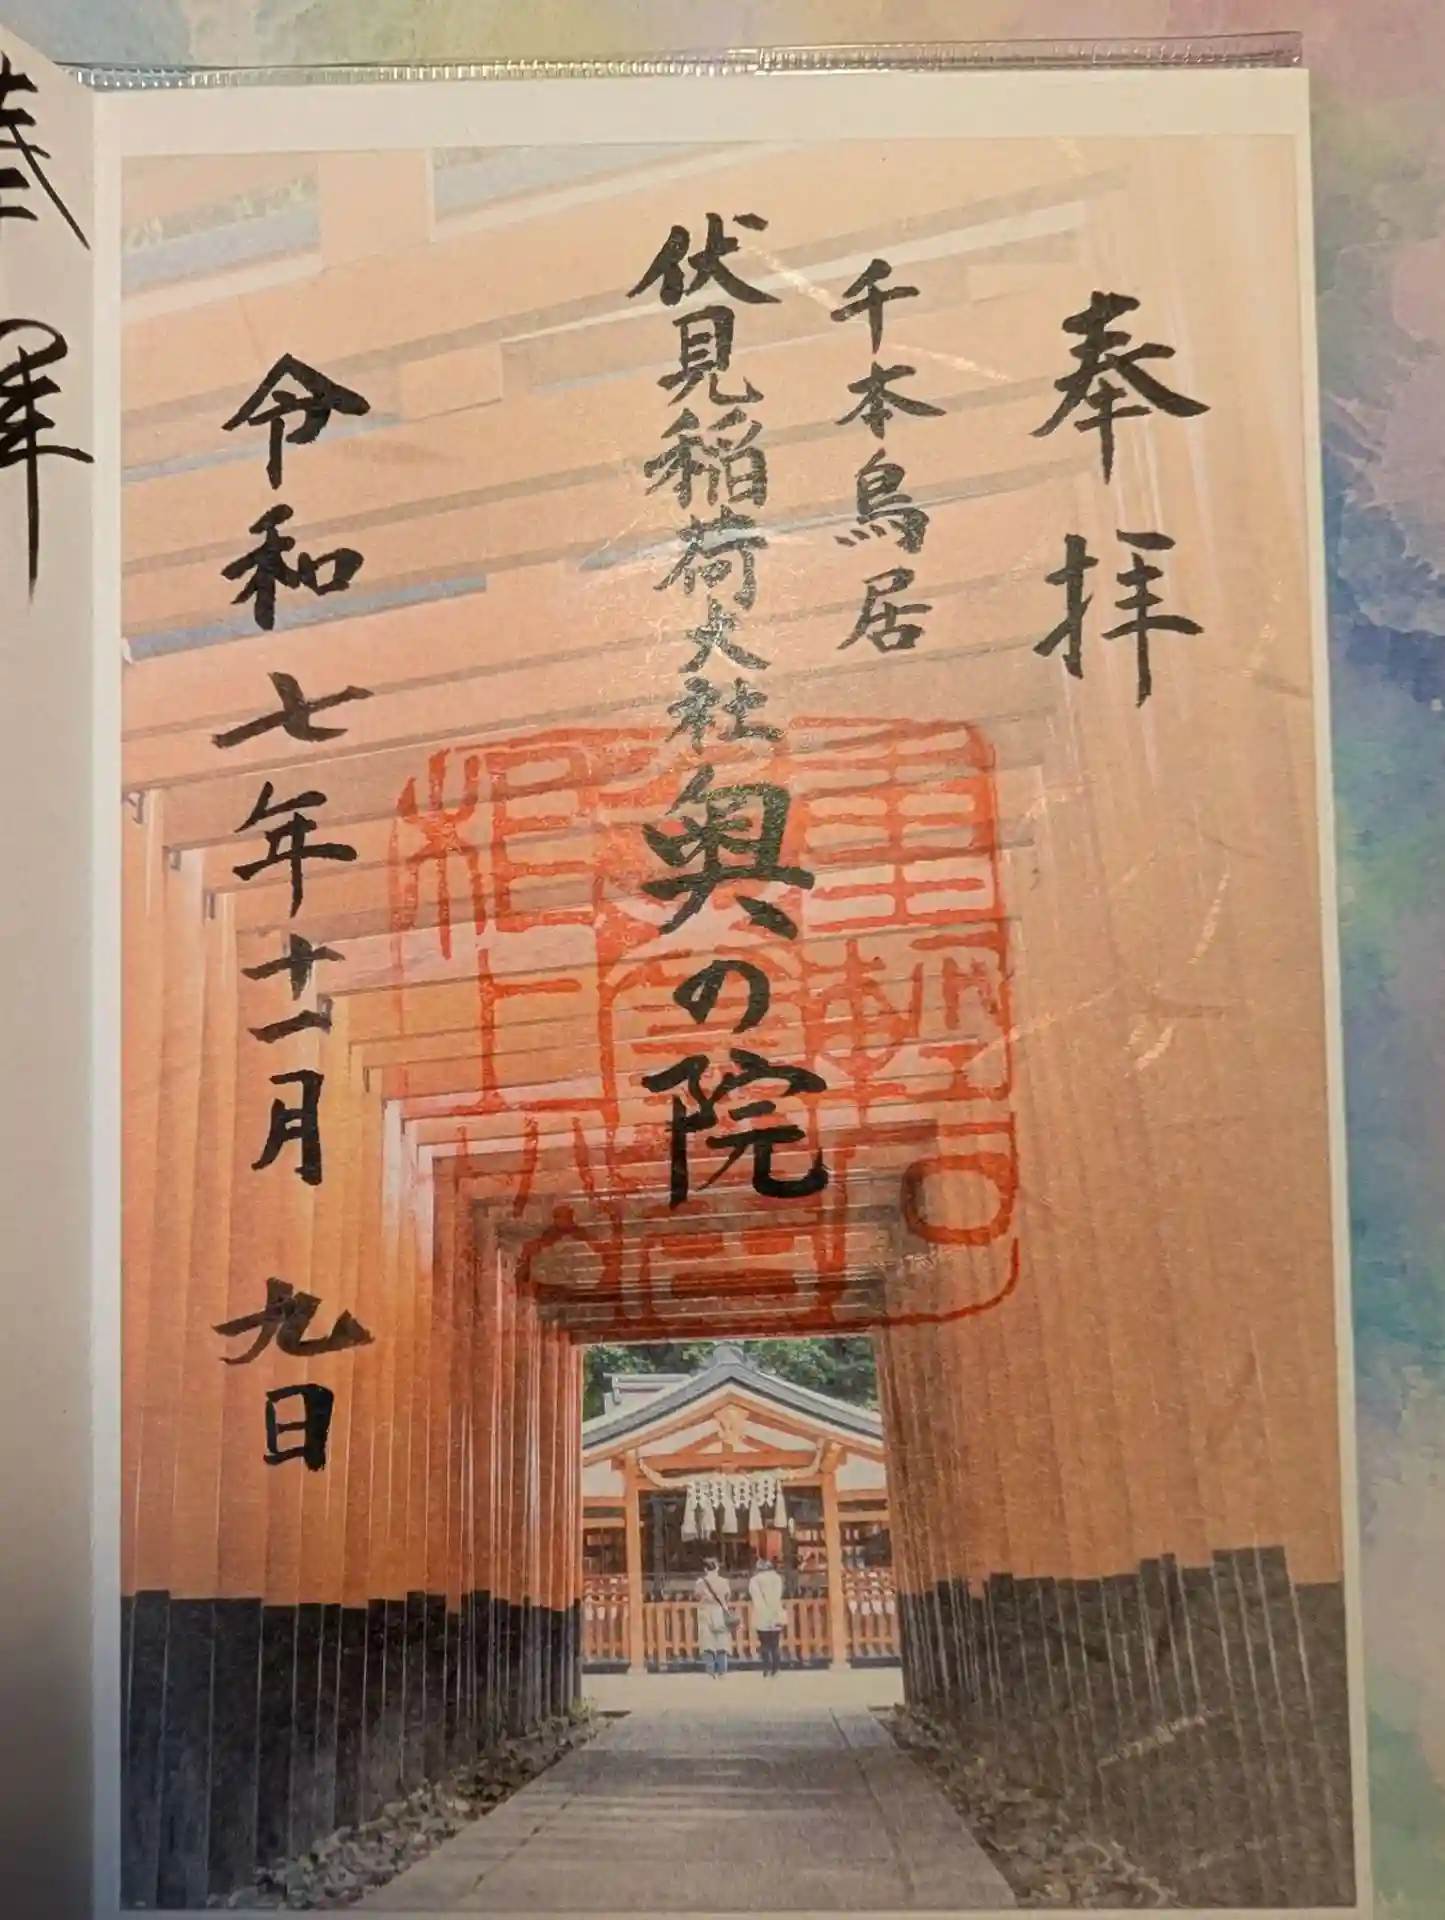 奉拝
千本鳥居
伏見稲荷大社奥の院
令和七年十一月九日
奉拝